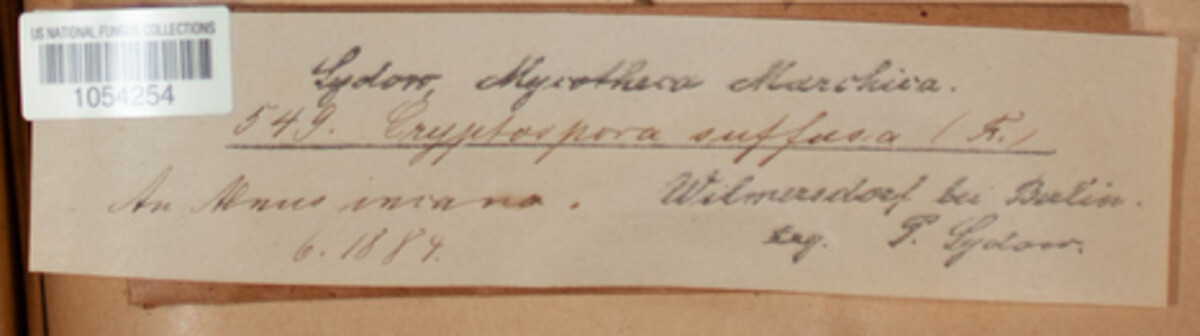 US NATIONAL FUNGUS COLLECTIONS
1054254
Sydow, Mycotheca Marchica.
549. Cryptospora suffusa (Fr.)
An Alnus incana.
Wilmersdorf bei Berlin.
6. 1884.
Leg. P. Sydow.